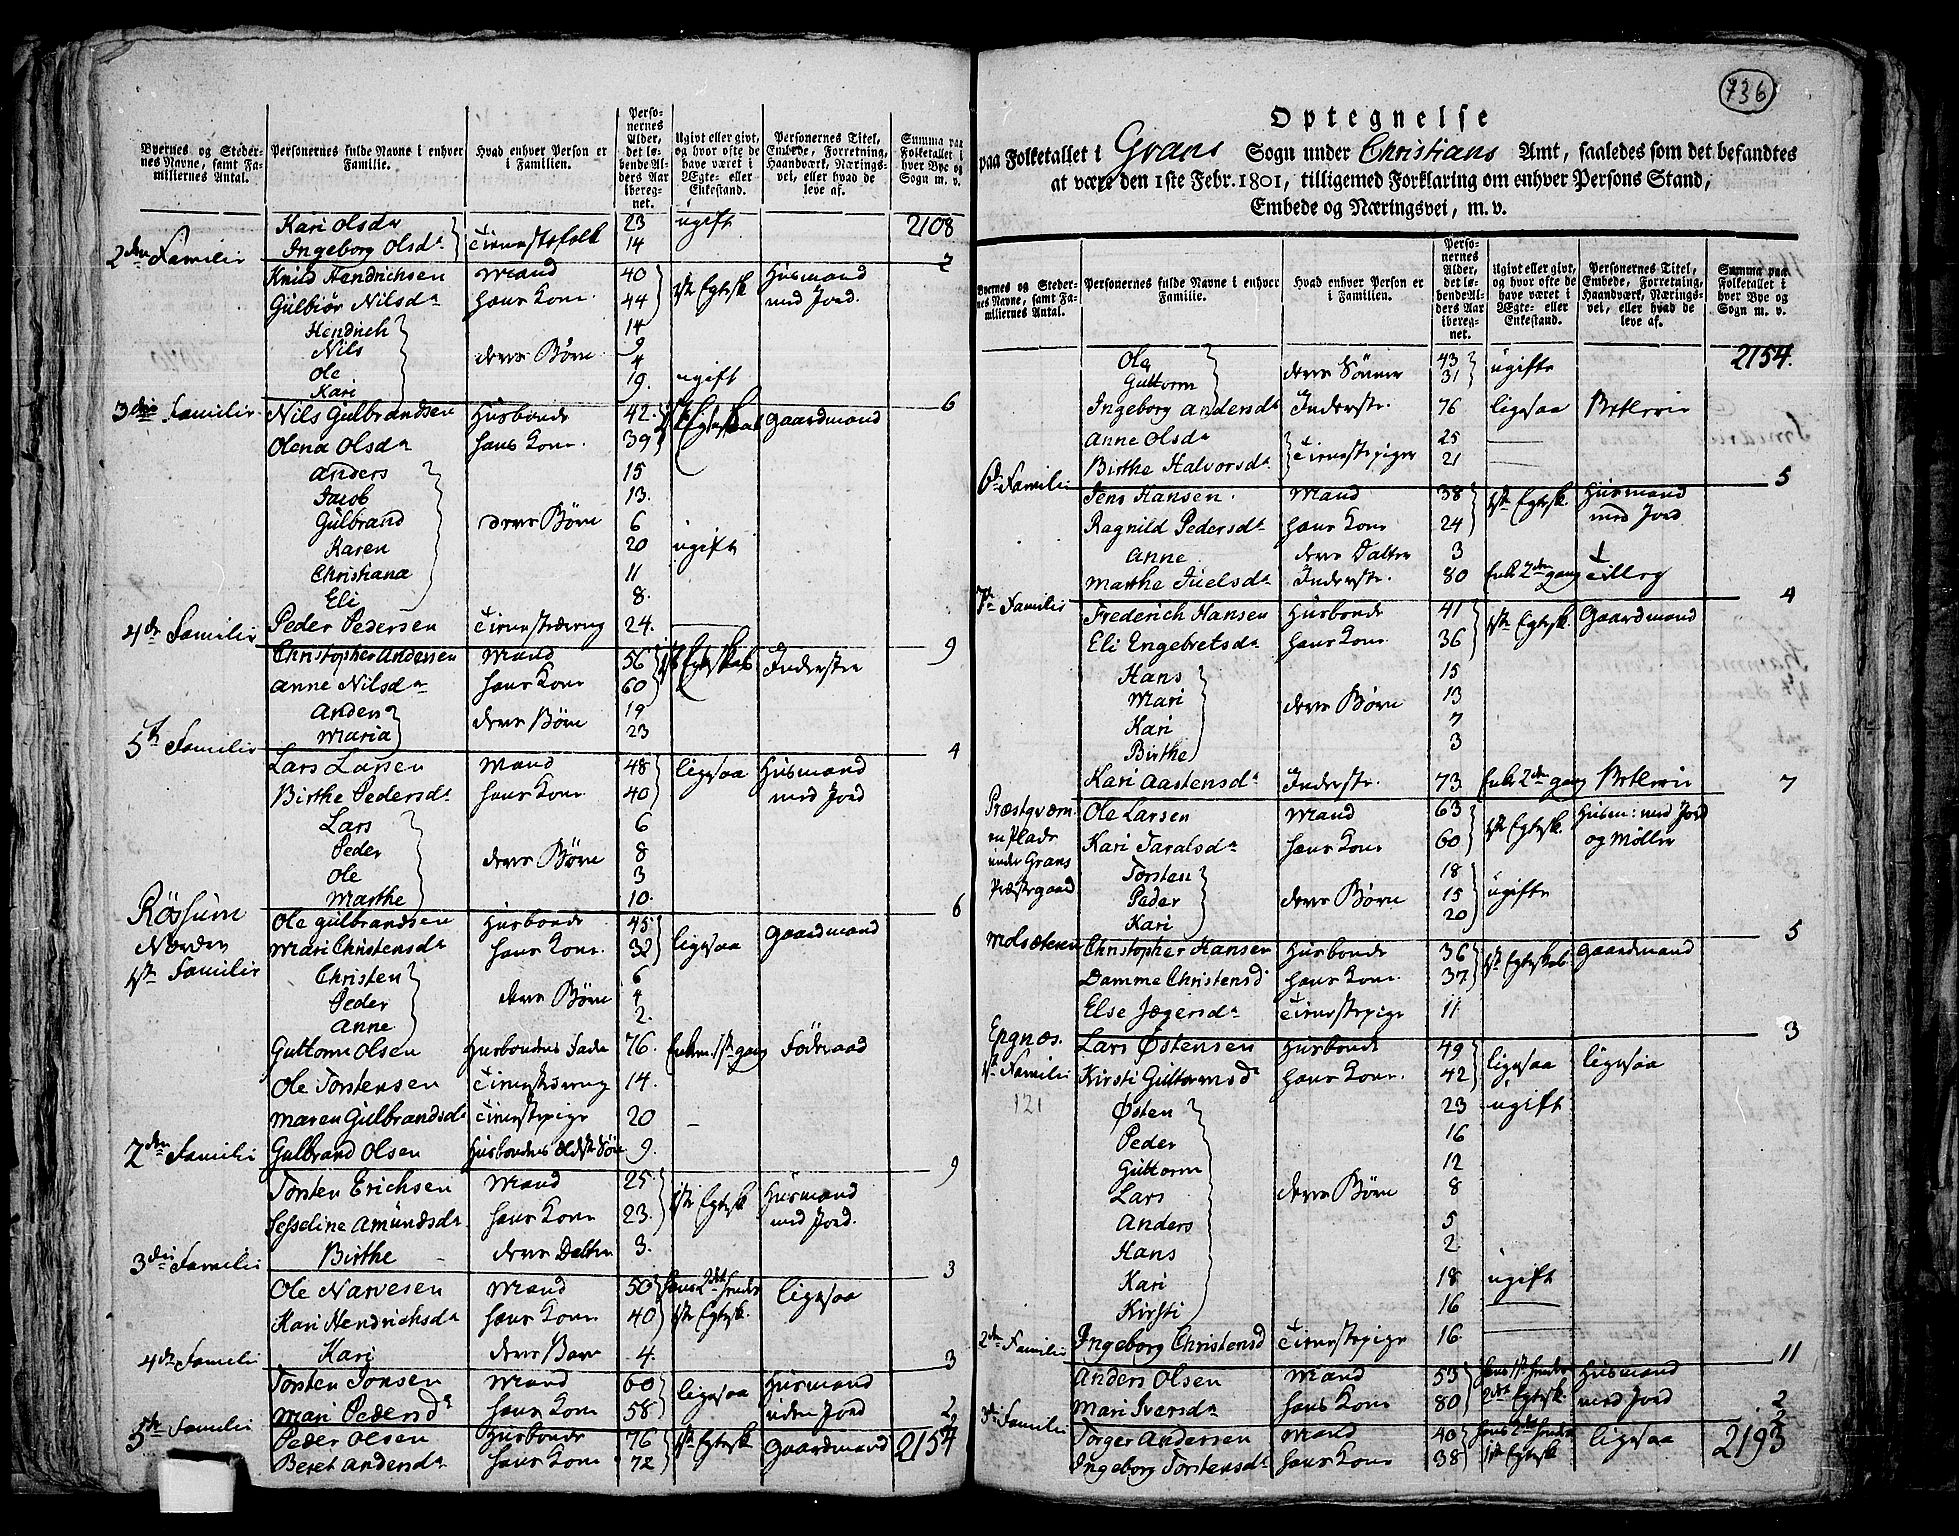 Byernes og Steder-
nes Navne, samt Fa-
miliernes Antal.
Personernes fulde Navne i enhver
Familie.
Hvad enhver Person er
i Familien.
Perso-
nernes
Alder,
det lø-
bende Al-
ders Aar
ibereg-
net.
Ugivt eller givt,
og hvor ofte de
have været i
Ægte- eller
Enkestand.
Personernes Titel,
Embede, Forretning,
Haandværk, Nærings-
vei, eller hvad de
leve af.
Summa paa
Folketallet i
hver Bye og
Sogn m. v.
Kari Olsdr 23 ugift 2108
Ingeborg Olsdr Tienestefolk 14
2den Familie 2
Knud Hendrichsen Mand 40 1ste Egtesk Husmand
Gulbiør Nilsdr hans Kone 44 med Jord.
Hendrich 14
Nils deres Børn 9
Ole 4
Kari 19 ugift
3die Familie 6
Nils Gulbrandsen Husbonde 42 1ste Egteskab Gaardmand
Olena Olsdr hans Kone 39
Anders 15
Jacob 13
Gulbrand deres Børn 6
Karen 20 ugift
Christiana 11
Eli 8
Peder Pedersen Tienestedreng 24
4de Familie 9
Christopher Andersen Mand 56 1ste Egteskab Inderste
Anne Nilsdr hans Kone 60
Anders deres Børn 19
Maria 23
5te Familie 4
Lars Larsen Mand 48 ligesaa Husmand
Birthe Pedersdr hans Kone 40 med Jord
Lars 6
Peder deres Børn 8
Ole 3
Marthe 10
Røssum 6
Nordre Ole Gulbrandsen Husbonde 45 ligesaa Gaardmand
1ste Familie Mari Christensdr hans Kone 32
Christen 6
Peder deres Børn 4
Anne 2
Guttorm Olsen Husbondens Fader 76 Enkem. 1ste gang Føderaad
Ole Torstensen Tienestedreng 14
Maren Gulbrandsdr Tienestepige 20
Gulbrand Olsen Husbondens Eldste Søn 9
2den Familie 9
Torsten Erichsen Mand 25 1ste Egtesk Husmand
Sesseline Amundsdr hans Kone 23 med Jord.
Birthe deres Datter 3
3die Familie 3
Ole Narvesen Mand 50 hans 2det hendes ligesaa
Kari Hendrichsdr hans Kone 40 1ste Egtesk.
Kari deres Barn 4
4de Familie 3
Torsten Jonsen Mand 60 ligesaa Husmand
Mari Pedersdr hans Kone 58 uden Jord 2
5te Familie 2
Peder Olsen Husbonde 76 1ste Egtesk Gaardmand 2154
Beret Andersdr hans Kone 72
736
Optegnelse
paa Folketallet i Grans Sogn under Christians Amt, saaledes som det befandtes
at være den 1ste Febr. 1801, tilligemed Forklaring om enhver Persons Stand,
Embede og Næringsvei, m. v.
Byernes og Steder-
nes Navne, samt Fa-
miliernes Antal.
Personernes fulde Navne i enhver
Familie.
Hvad enhver Person er
i Familien.
Perso-
nernes
Alder,
det lø-
bende Al-
ders Aar
ibereg-
net.
Ugivt eller givt,
og hvor ofte de
have været i
Ægte- eller
Enkestand.
Personernes Titel,
Embede, Forretning,
Haandværk, Nærings-
vei, eller hvad de
leve af.
Summa paa
Folketallet i
hver Bye og
Sogn m. v.
Ole deres Sønner 43 ugifte 2154
Guttorm 31
Ingeborg Andersdr Inderste 76 ligesaa Betlerie
Anne Olsdr Tienestepiger 25
Birthe Halvorsdr 21
6te Familie 5
Jens Hansen Mand 38 1ste Egtesk Husmand
Ragnild Pedersdr hans Kone 24 med Jord
Anne deres Datter 3
Marthe Juelsdr Inderste 80 Enke 2den gang
7de Familie 4
Frederich Hansen Husbonde 41 1ste Egtesk Gaardmand
Eli Engebretsdr hans Kone 36
Hans 15
Mari deres Børn 13
Kari 7
Birthe 3
Kari Aastensdr Inderste 73 Enke 2den gang Betlerie 7
Præstqværn- Ole Larsen Mand 63 1ste Egtesk. Husm: med Jord
en Plads Kari Taralsdr hans Kone 60 og Møller
under Grans Torsten 18
Præstegaard Peder deres Børn 15 ugifte
Kari 20
5
Molsæteren Christopher Hansen Husbonde 36 1ste Egteskab Gaardmand
Damme Christensd hans Kone 37
Else Jægersdr Tienestepige 11
Egnæs. 3
1ste Familie Lars Østensen Husbonde 49 ligesaa ligesaa
Kirsti Guttormsd hans Kone 42
121 Østen 23 ugift
Peder 16
Guttorm 12
Lars deres Børn 8
Anders 5
Hans 2
Kari 18 ugift
Kirsti 16
Ingeborg Christensd Tienestepige 16
2den Familie 11
Anders Olsen Mand 53 hans 1ste hendes Husmand
Mari Iversdr hans Kone 80 2det Egtesk. med Jord 2
3die Familie 2
Torger Andersen Mand 40 hans 2det hendes ligesaa 2193
Ingeborg Torstensdr hans Kone 38 1ste Egtesk